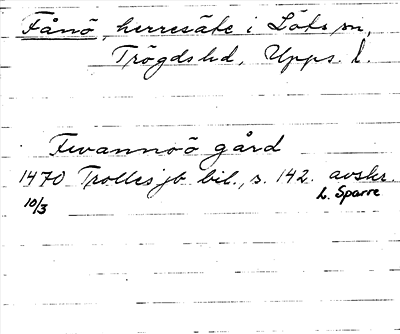 Fånö, herresäte i Löts sn,
Trögds hd, Upps. l.
Fwannoö gård
1470 Trolles jb bil., s. 142. avskr.
10/3 L. Sparre